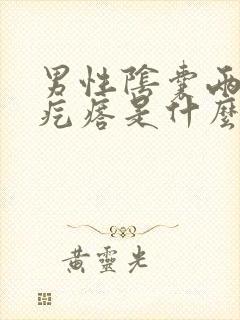 男性陰囊兩
疙瘩是什麼
黃靈光